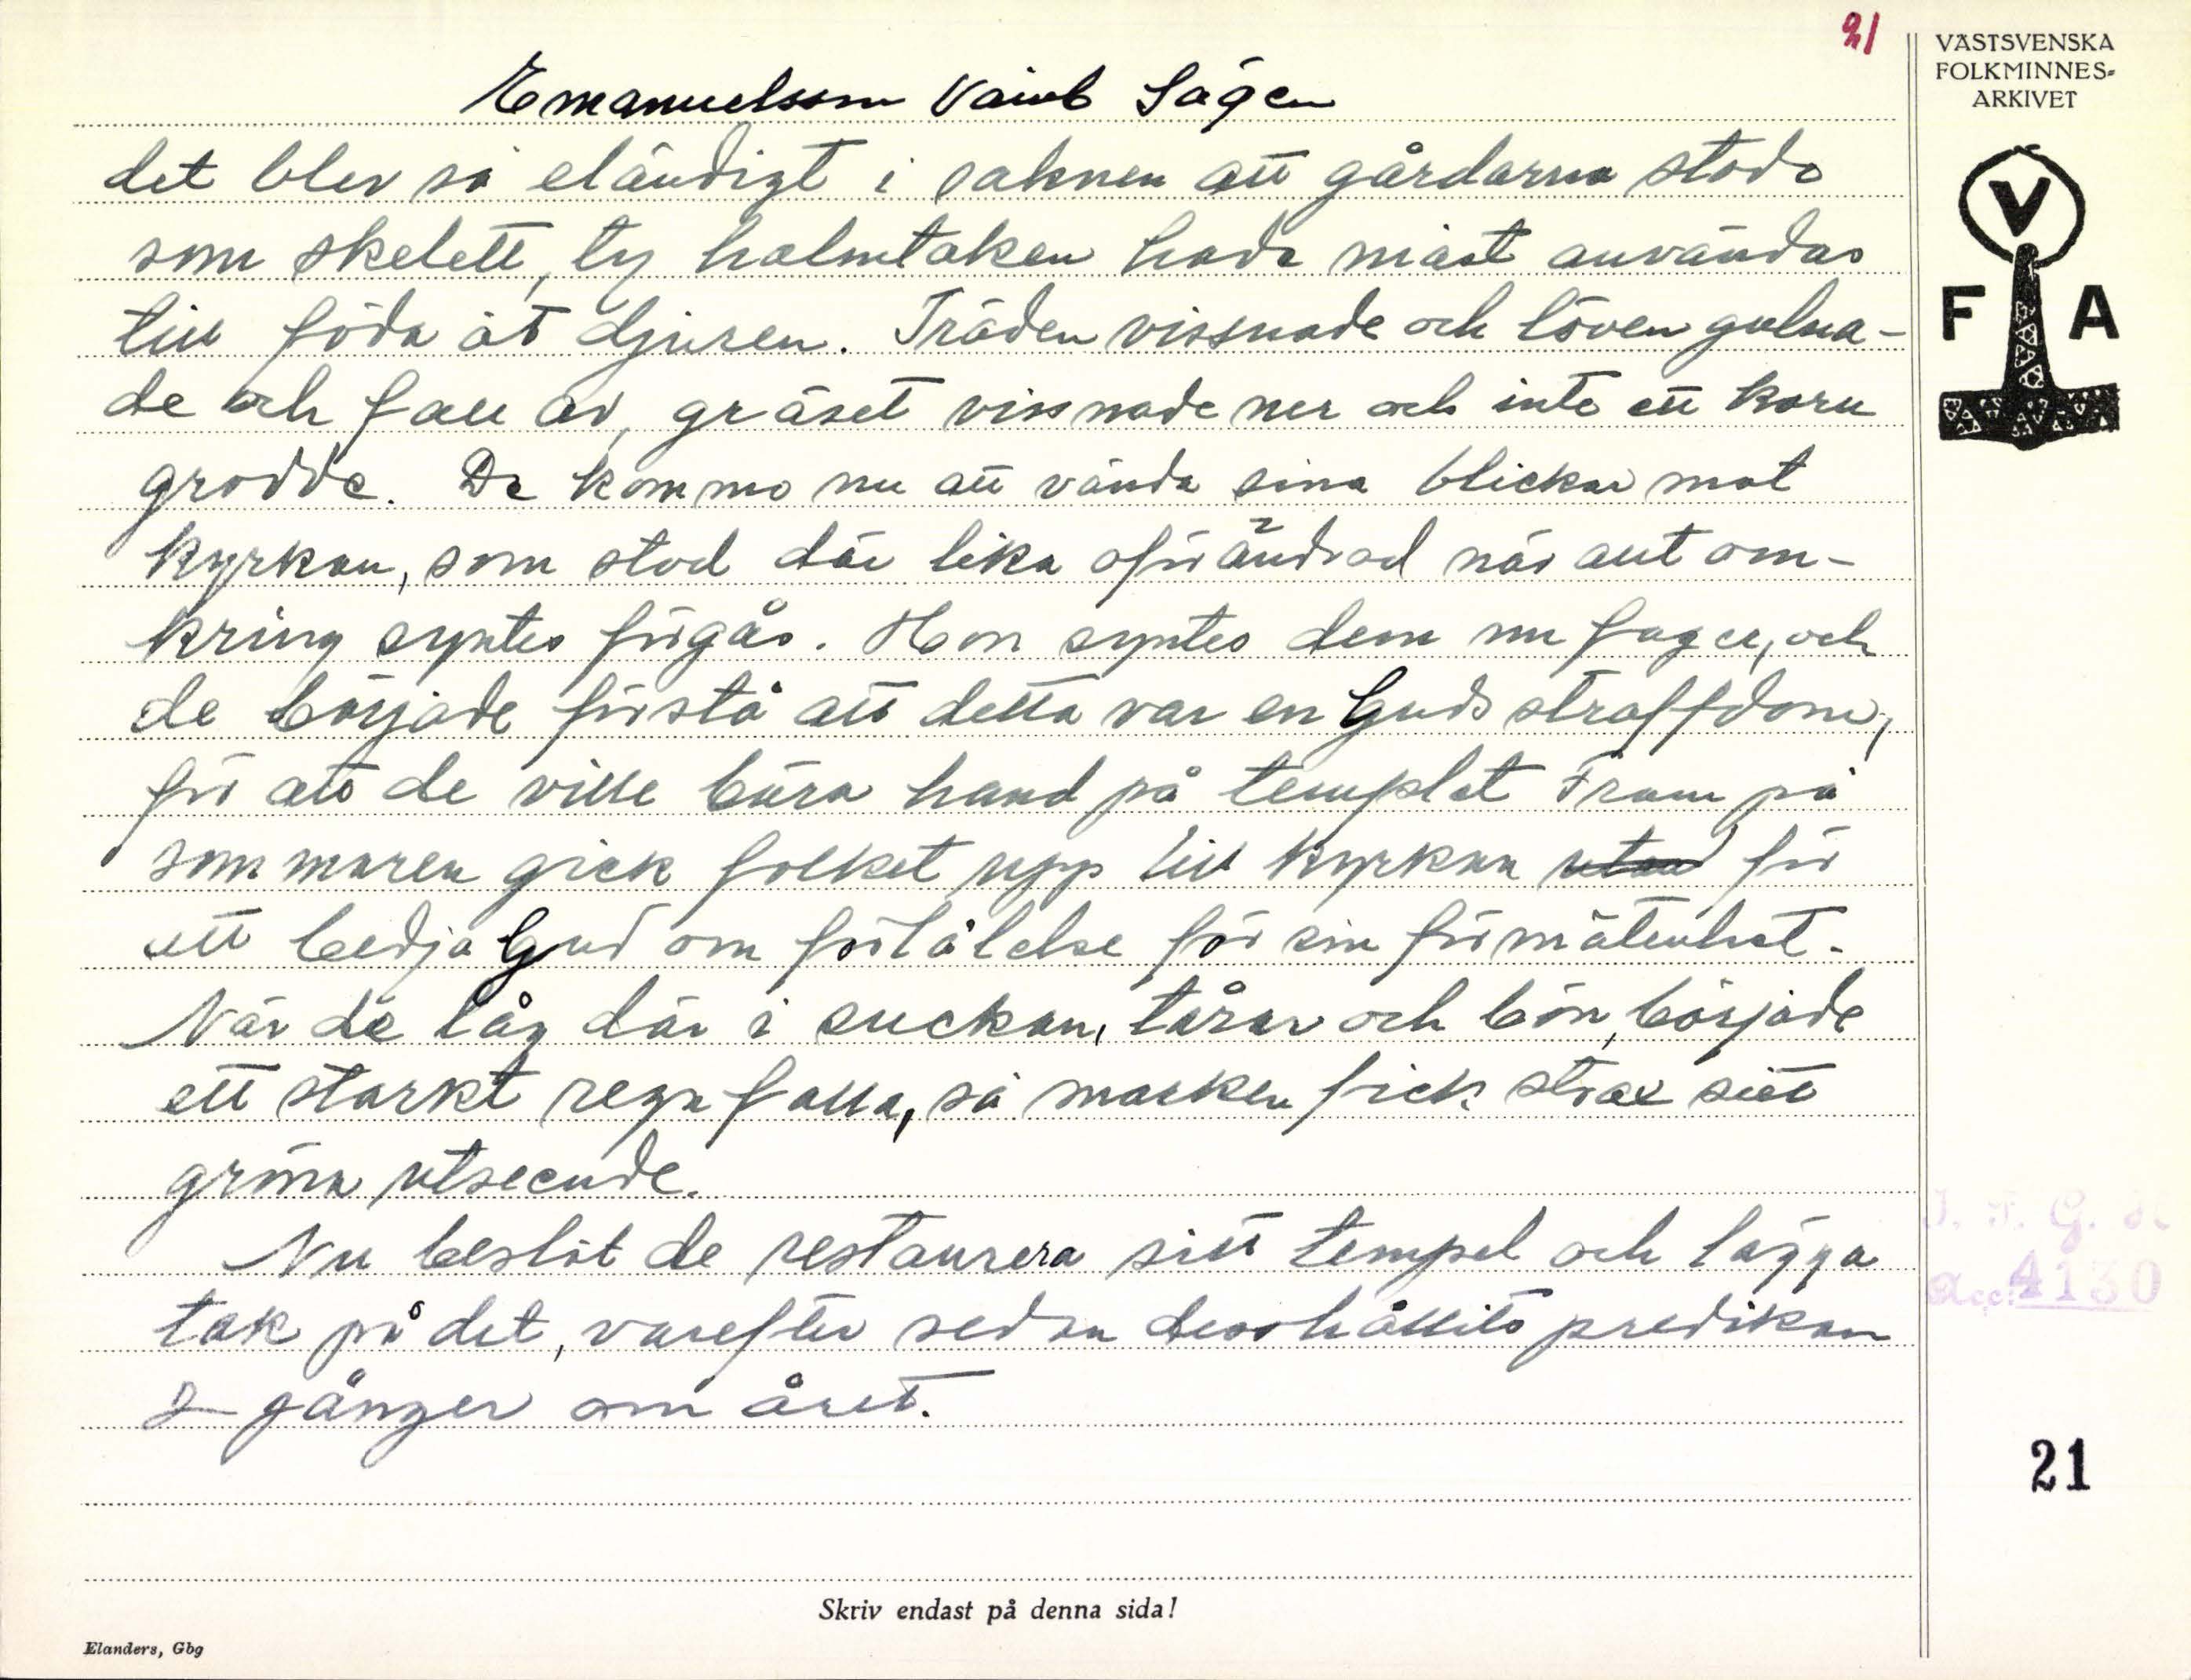 21
VÄSTSVENSKA
FOLKMINNES-
ARKIVET
Emanuelsson Vainb Sägen
det blev så eländigt i saknen att gårdarna stodo
som skelett, ty halmtaken hade måst användas
till föda åt djuren. Träden vissnade och löven gulna-
de och föll av, gräset vissnade ner och inte ett korn
grodde. De kommo nu att vända sina blickar mot
kyrkan, som stod där lika oförändrad när allt om-
kring syntes förgås. Hon syntes dem nu fager, och
de började förstå att detta var en Guds straffdom,
för att de ville bära hand på templet Fram på
sommaren gick folket upp till kyrkan utan för
att bedja Gud om förlåtelse för sin förmätenhet.
När de låg där i suckan, tårar och bön, började
ett starkt regn falla, så marken fick strax sitt
gröna utseende.
Nu beslöt de restaurera sitt tempel och lägga
tak på det, varefter sedan dess hållits predikan
2 gånger om året.
V
F A
I. F. G. H
Acc. 4130
21
Skriv endast på denna sida!
Elanders, Gbg